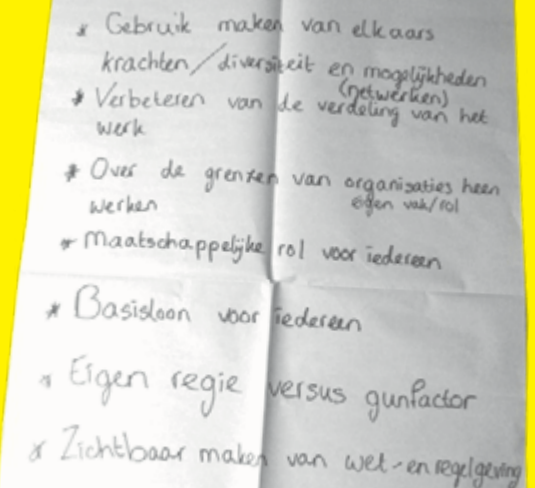 * Gebruik maken van elkaars
krachten/diversiteit en mogelijkheden
(netwerken)
* Verbeteren van de verdeling van het
werk
* Over de grenzen van organisaties heen
werken eigen vak/rol
* Maatschappelijke rol voor iedereen
* Basisloon voor iedereen
* Eigen regie versus gunfactor
* Zichtbaar maken van wet- en regelgeving